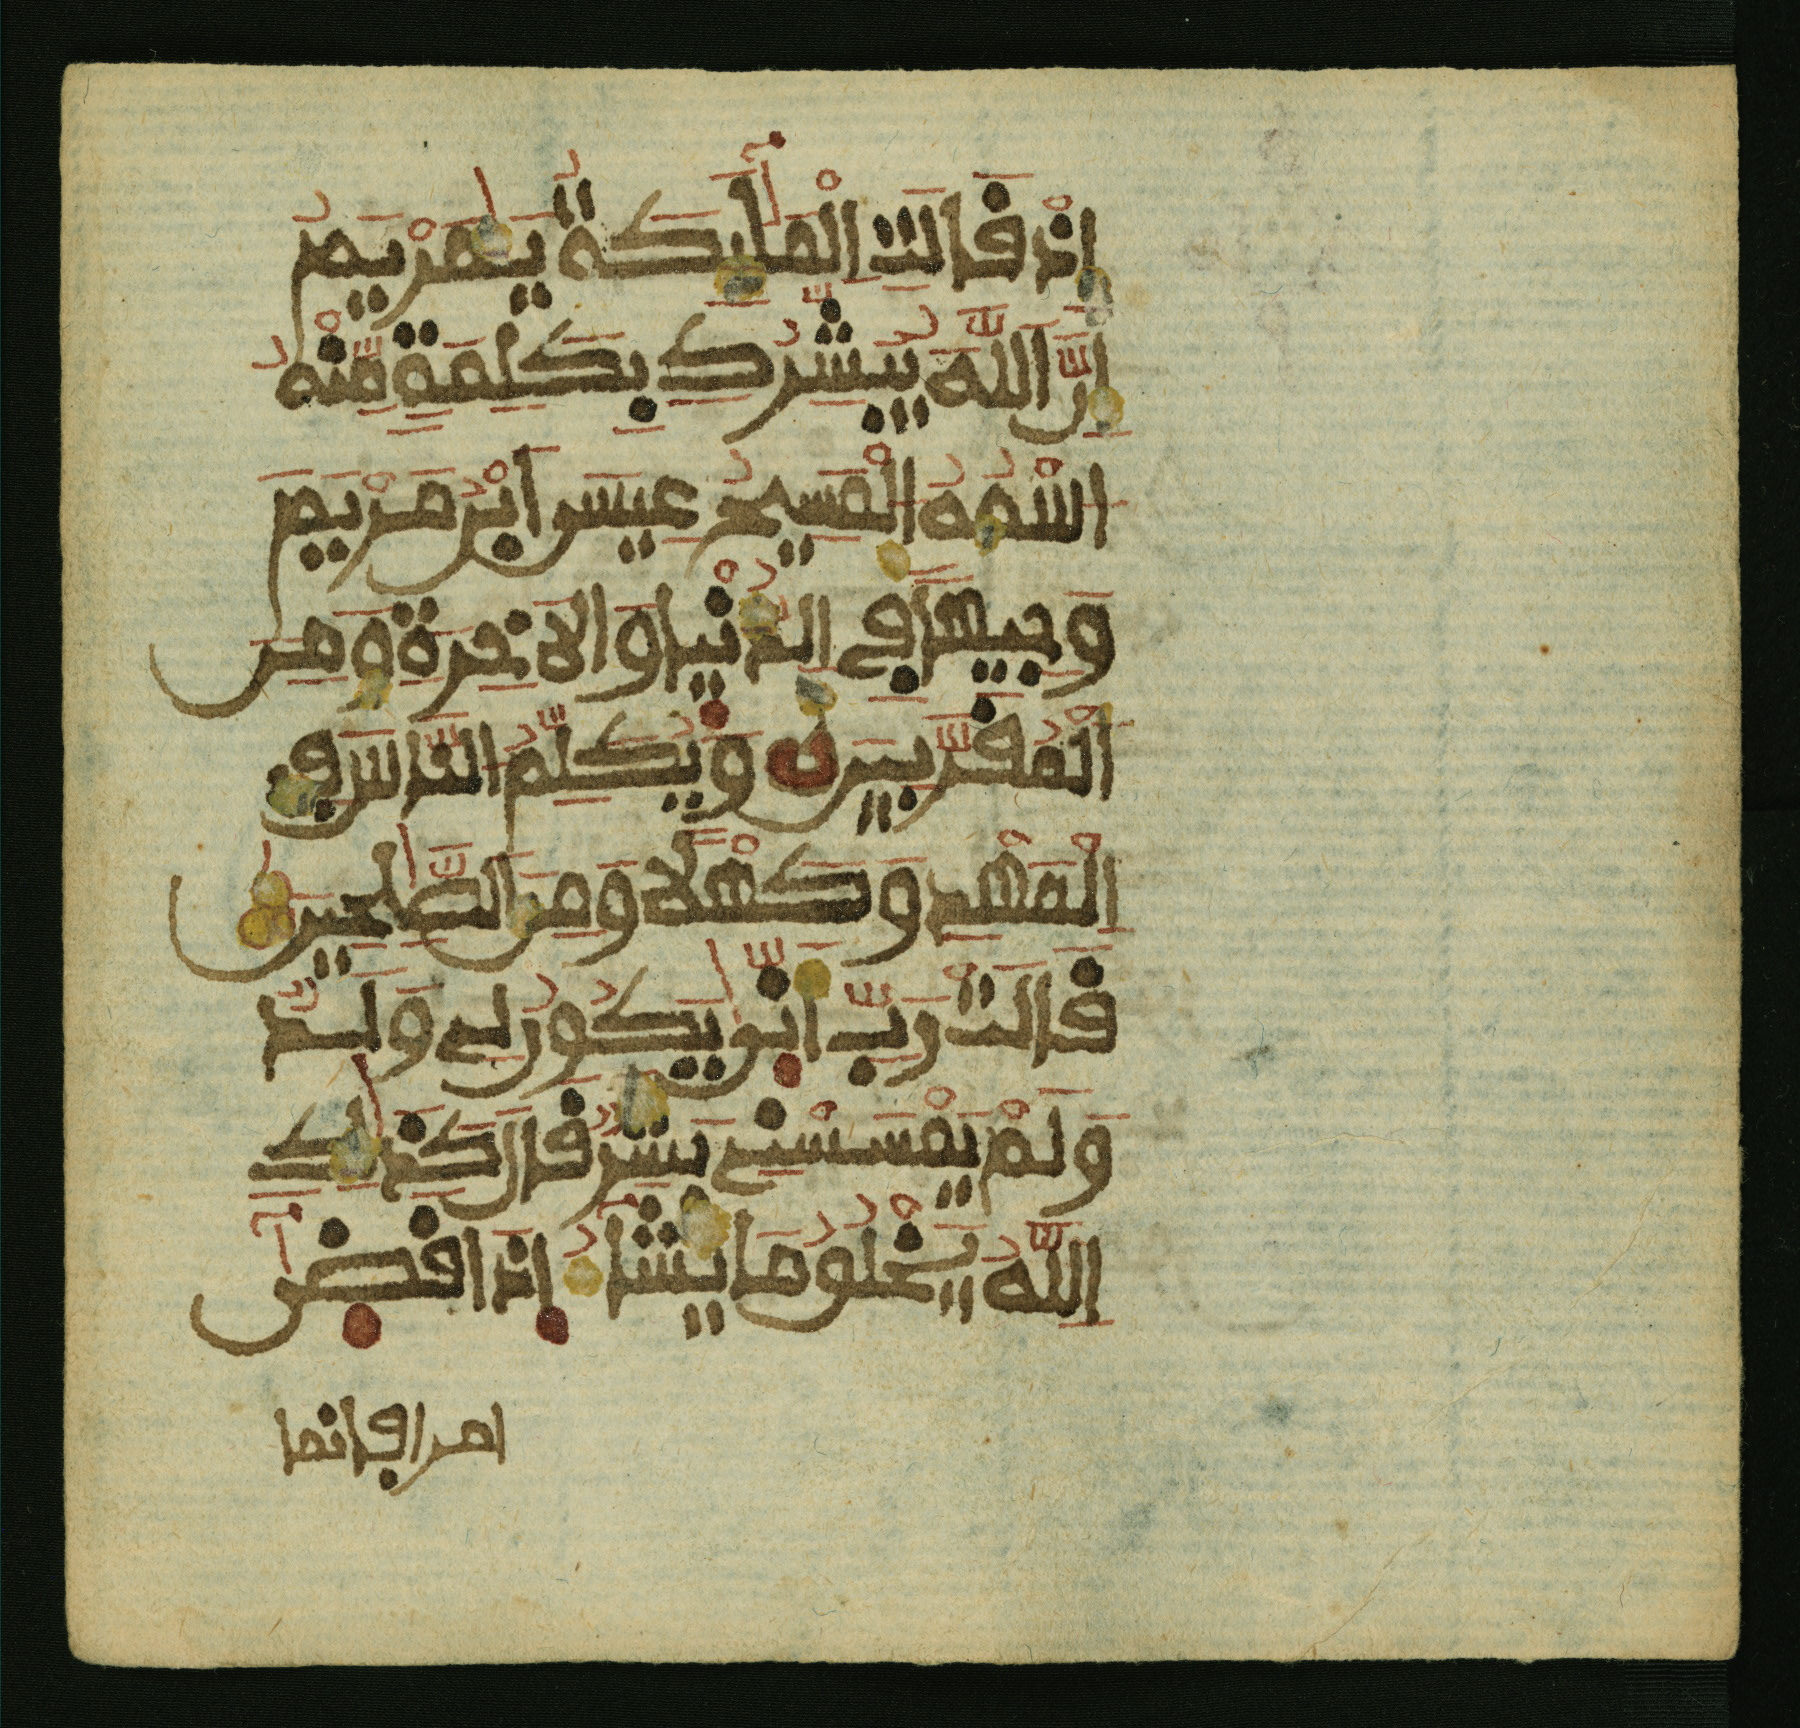 إِذْ قَالَتِ الْمَلَٰٓئِكَةُ يَٰمَرْيَمُ
إِنَّ اللَّهَ يُبَشِّرُكِ بِكَلِمَةٍ مِّنْهُ
اسْمُهُ الْمَسِيحُ عِيسَى ابْنُ مَرْيَمَ
وَجِيهًا فِي الدُّنْيَا وَالَاخِرَةِ وَمِنَ
الْمُقَرَّبِينَ وَيُكَلِّمُ النَّاسَ فِي
الْمَهْدِ وَكَهْلًا وَمِنَ الصَّٰلِحِينَ
قَالَتْ رَبِّ أَنَّىٰ يَكُونُ لِي وَلَدٌ
وَلَمْ يَمْسَسْنِي بَشَرٌ قَالَ كَذَٰلِكِ
اللَّهُ يَخْلُقُ مَا يَشَآءُ إِذَا قَضَىٰٓ
امرا فانما